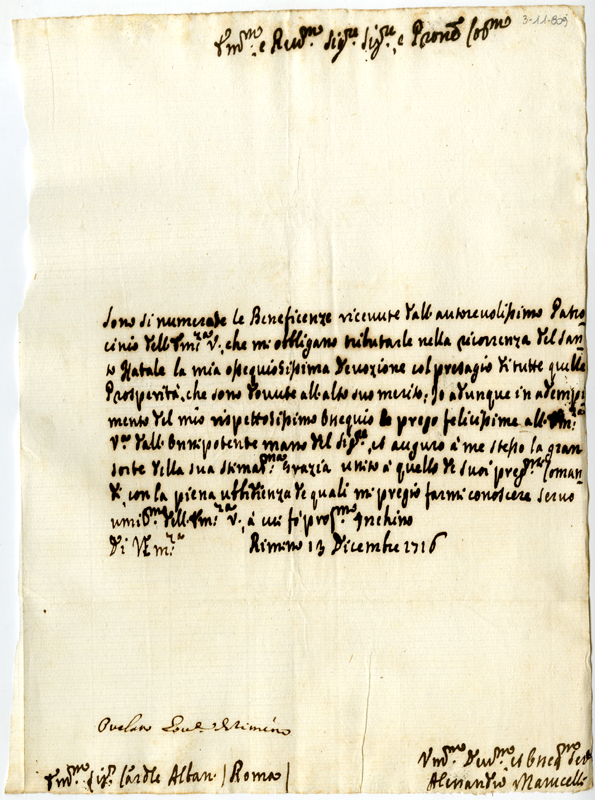 3-11-809
Em.mo e Rev.mo Sig.re Sig.re, e Pron.e Col.mo
Sono si numerose le Beneficenze ricevute dall autorevolissimo Patro
cinio dell Em.za V., che mi obbligano tributarle nella ricorrenza del San
to Natale la mia ossequiosissima devozione col presagio di tutte quelle
Prosperità, che sono dovute all alto suo merito; Io adunque in adempi
mento del mio rispettosissimo Ossequio le prego felicissime all Em.za
V.ra dall Onnipotente mano del Sig.re, et auguro à me stesso la gran
sorte della sua stimat.ma Grazia unito à quello de suoi preg.mi Coman
di, con la piena ubbidienza de quali mi pregio farmi conoscere servo
umiliss.mo dell Em.za V., à cui fò prof.mo Inchino
Di V. Em.za Rimino 13 Dicembre 1716
Rimino
Em.mo Sig.r Card.le Albani / Roma /
Um.mo Dev.mo et Obseq.mo Ser.re
Alessandro Marucelli